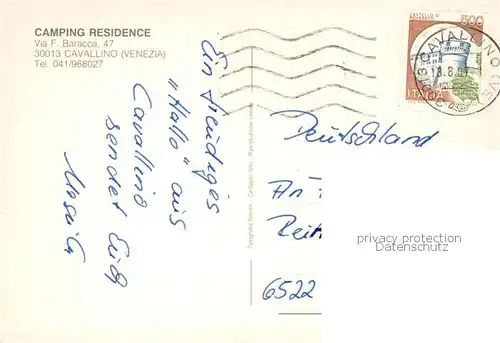 CAMPING RESIDENCE
Via F. Baracca, 47
30013 CAVALLINO (VENEZIA)
Tel. 041/968027
Ein freudiges
"Hallo" aus
Cavallino
sendet Euch
500
ITALIA
CAVALLINO VE
Deutschland
An
6522
privacy protection
Datenschutz